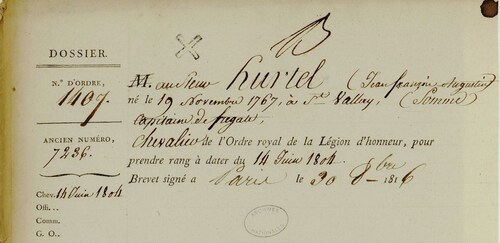 B
DOSSIER.
N.º D'ORDRE,
1409.
ANCIEN NUMÉRO,
7236.
Chev. 14 Juin 1804
Offi...
Comm.
G. O...
M. au Sieur Hurtel (Jean françois Augustin)
né le 19 Novembre 1767, à St Vallery, (Somme)
capitaine de frégate,
chevalier de l'Ordre royal de la Légion d'honneur, pour
prendre rang à dater du 14 Juin 1804.
Brevet signé à Paris le 30 8bre 1816